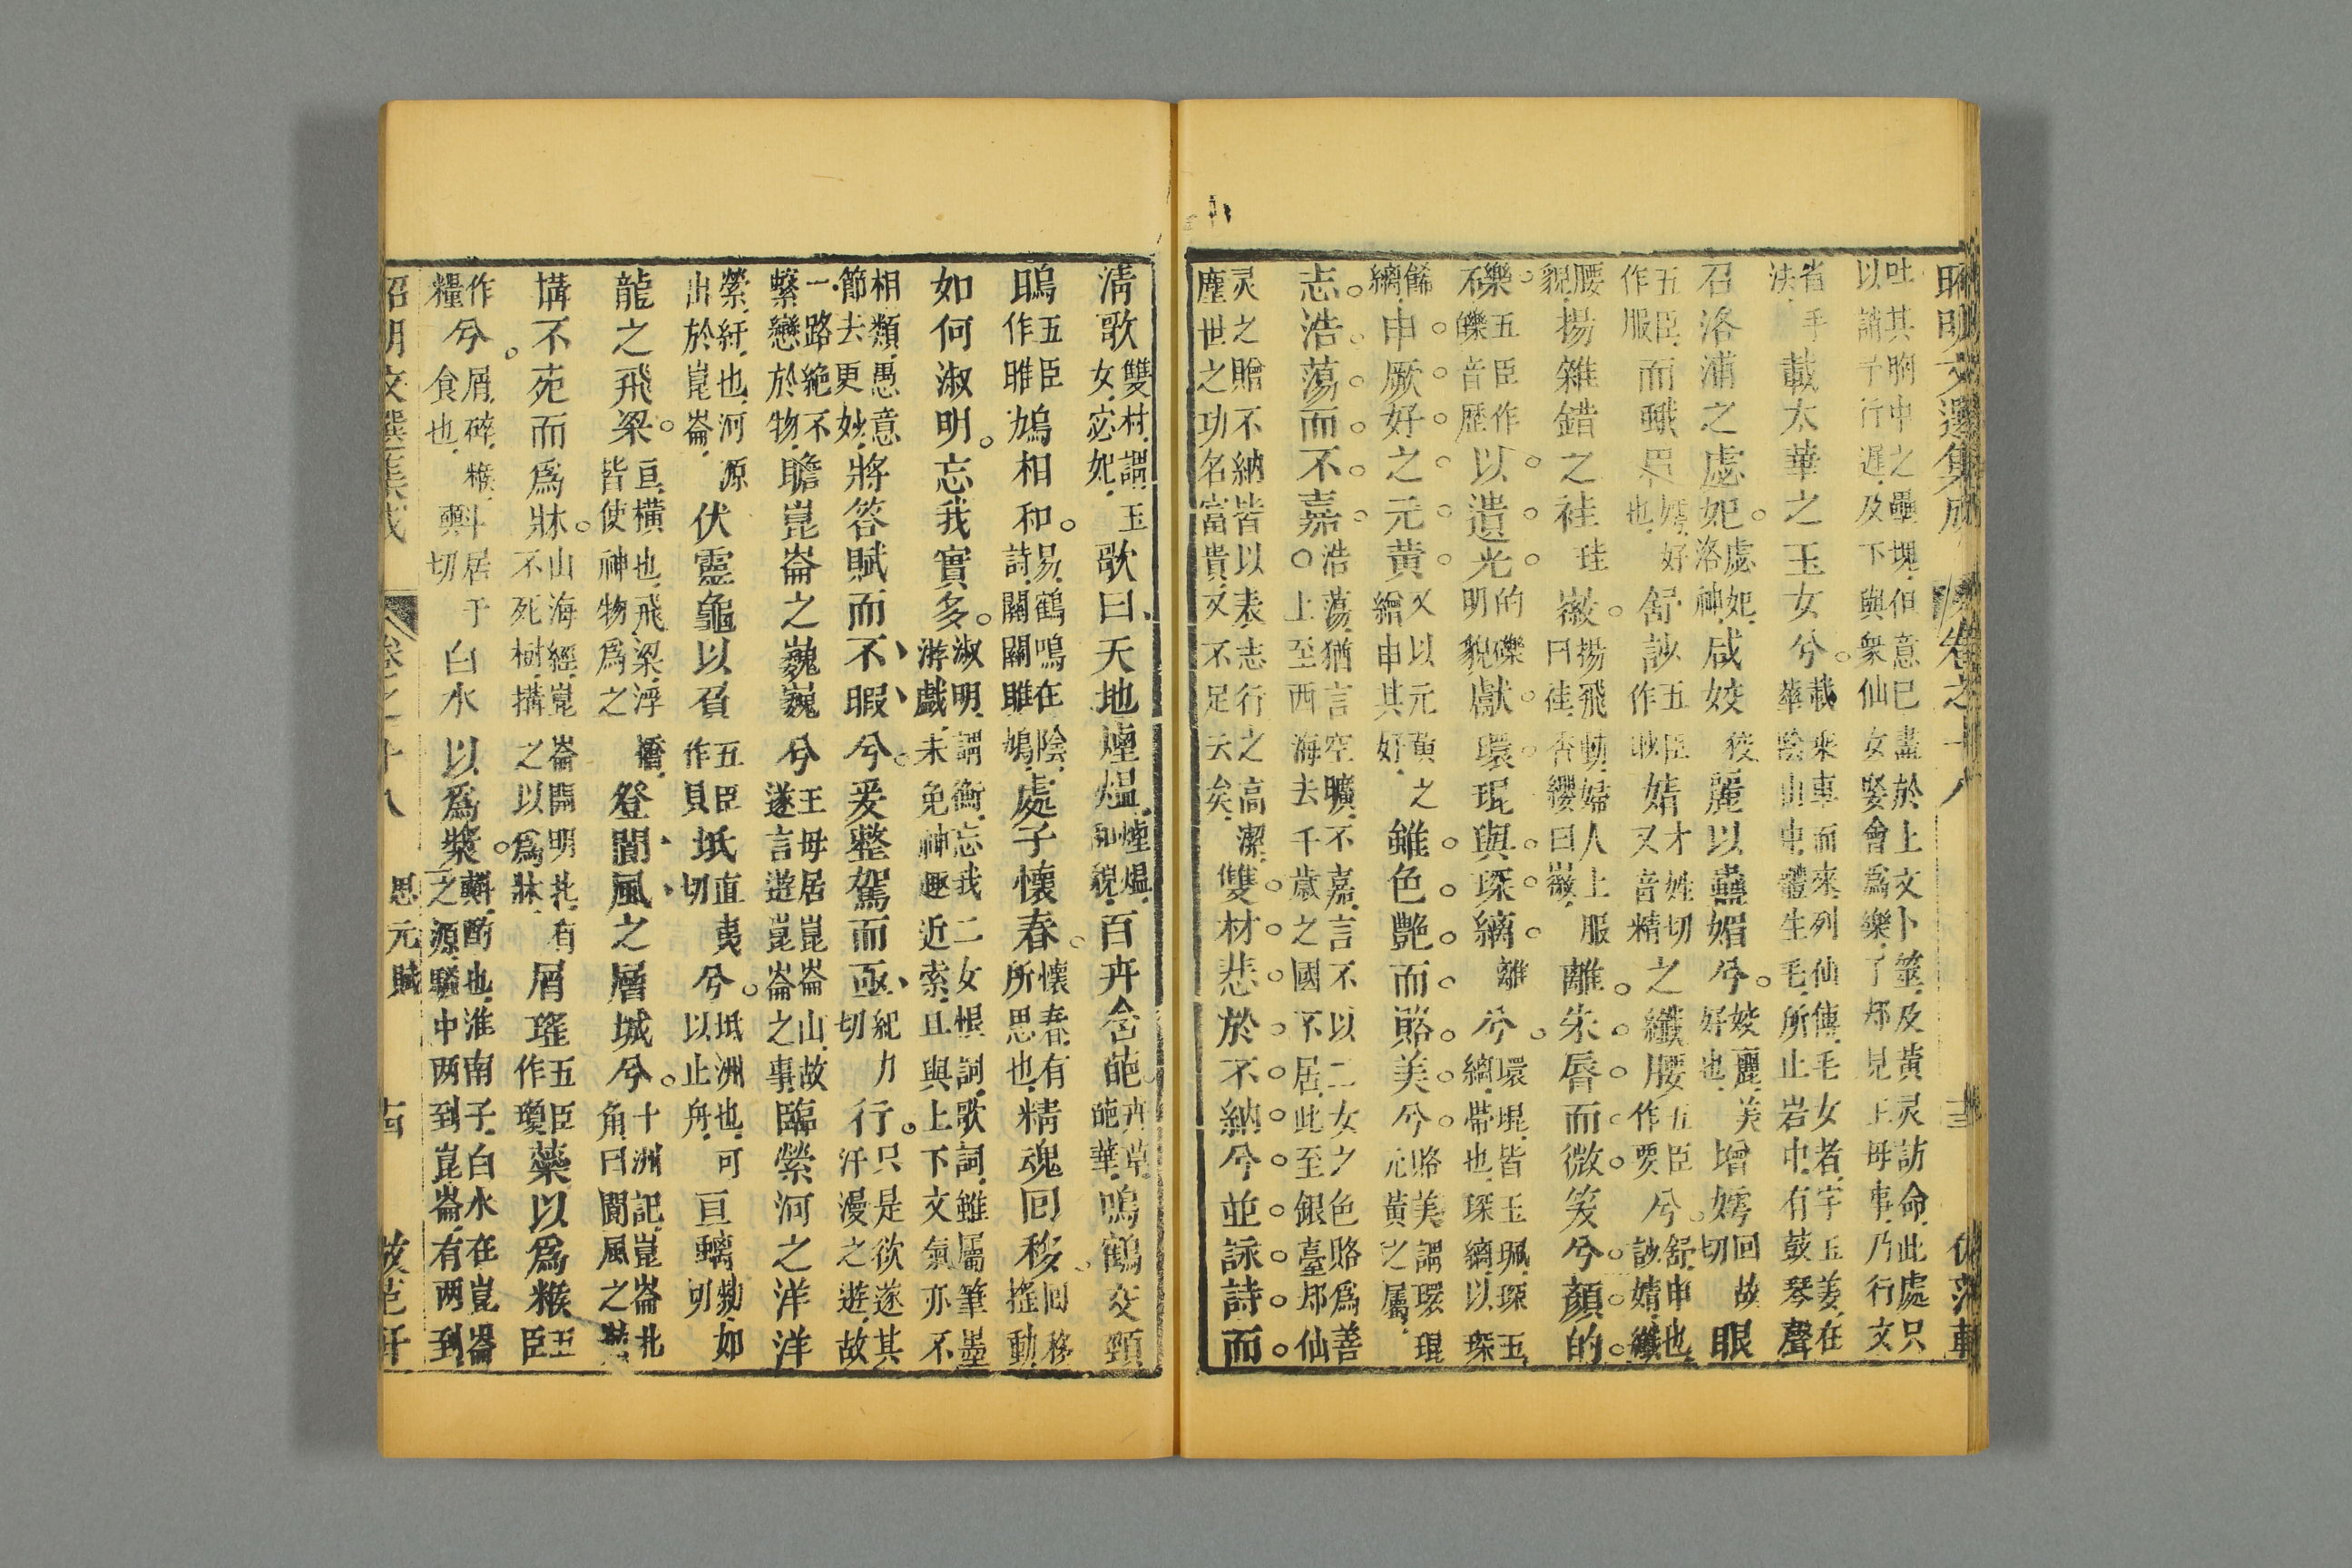 昭明文選集成 卷之十八 三 倣范軒
吐其胸中之壘塊但意已盡於上文卜筮及黃灵訪命此處只
以誚予行遲及下與衆仙女娶會爲樂了却見王母事乃行文
省手載太華之玉女兮載乘車而來列仙傳毛女者字玉姜在
法華陰山中體生毛所止岩中有鼓琴聲
召洛浦之虙妃虙妃洛神咸姣狡麗以蠱媚兮姣麗美好也增嫮回故切眼
五臣作服而蛾眉嫮好也舒訬五臣作眇婧才姓切又音精之纖腰五臣作要兮舒申也訬婧纖
腰貌揚雜錯之袿珪徽揚飛動婦人上服曰袿香纓曰徽離朱唇而微笑兮顏的
不樂五臣作皪音歷以遺光的礫明貌獻環琨與琛縭離兮環琨皆玉珮琛玉縭帶也琛縭以琛
餙縭申厥好之元黄又以元黃之繒申其好雖色艷而賂美兮賂美謂環琨元黃之屬
志浩蕩而不嘉浩蕩猶言空曠不嘉言不以二女之色賂爲善上至西海去千歲之國不居此至銀臺却仙
灵之贈不納皆以表志行之高潔塵世之功名富貴又不足去矣雙材悲於不納兮並詠詩而
清歌雙材謂玉女宓妃歌曰天地烟熅烟熅和貌百卉含葩卉草葩華鳴鶴交頸
鴡五臣作雎鳩相和易鶴鳴在陰詩關關雎鳩處子懷春懷春有所思也精魂回移回移搖動
如何淑明忘我實多淑明謂衡忘我二女恨詞歌詞雖屬筆墨游戲未免神趣近索且與上下文氣亦不
相類愚意節去更妙將答賦而不暇兮爰整駕而亟紀力切行只是欲遂其汗漫之遊故
一路絶不繫戀於物瞻崑崙之巍巍兮王母居崑崙山故遂言遊崑崙之事臨縈河之洋洋
縈紆也河源出於崑崙伏靈龜以負五臣作貝坻直夷切兮坻洲也可以止舟亘螭勑知切
龍之飛梁亘橫也飛梁浮橋皆使神物爲之登閬風之層城兮十洲記崑崙北角曰閬風之巔
搆不死而爲牀山海經崑崙開明北有不死樹搆之以爲牀屑瑤五臣作瓊蘂以爲糇五臣
作糧兮屑碎糇食也斞居于切白水以爲漿斞酌也淮南子白水在崑崙之源騷中两到崑崙有两到
昭明文選集成 卷之十八 思元賦 古 倣范軒